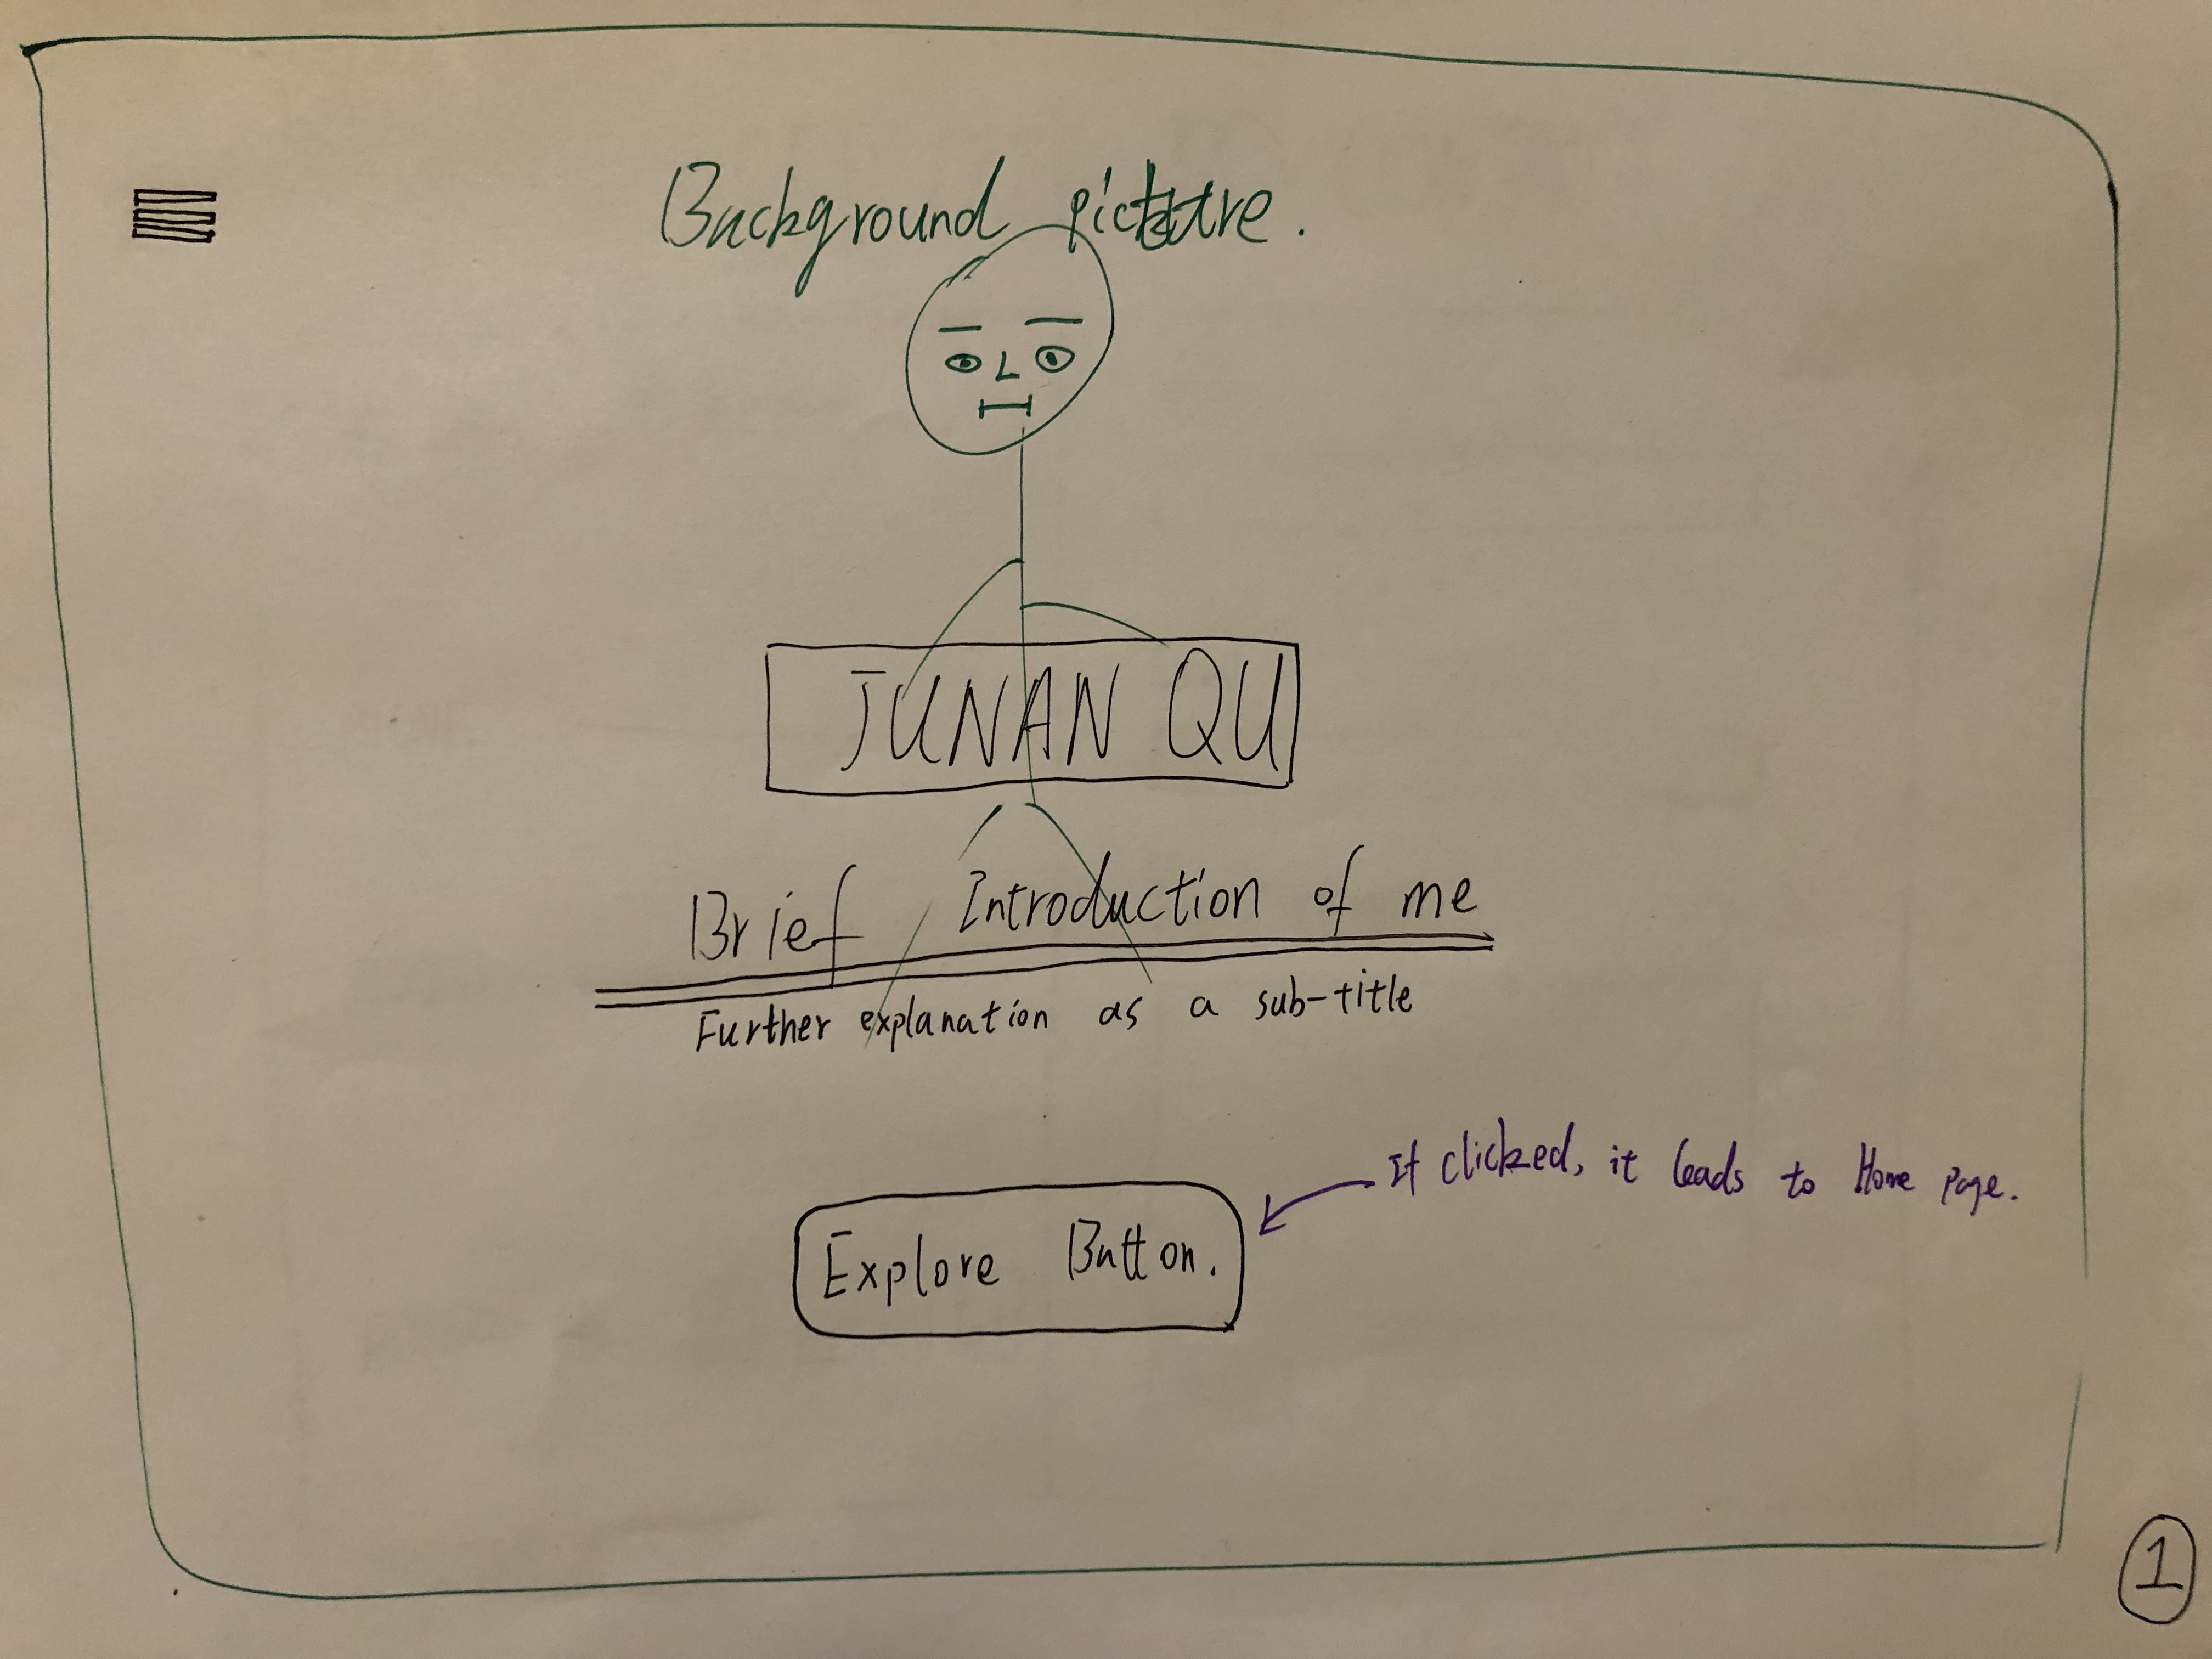 Background picture.
JUNAN QU
Brief Introduction of me
Further explanation as a sub-title
Explore Button.
If clicked, it leads to Home Page.
1